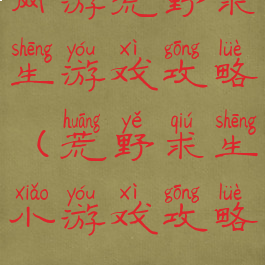 游荒野求
shēng yóu xì gōng lüè
生游戏攻略
huāng yě qiú shēng
(荒野求生
xiǎo yóu xì gōng lüè
小游戏攻略